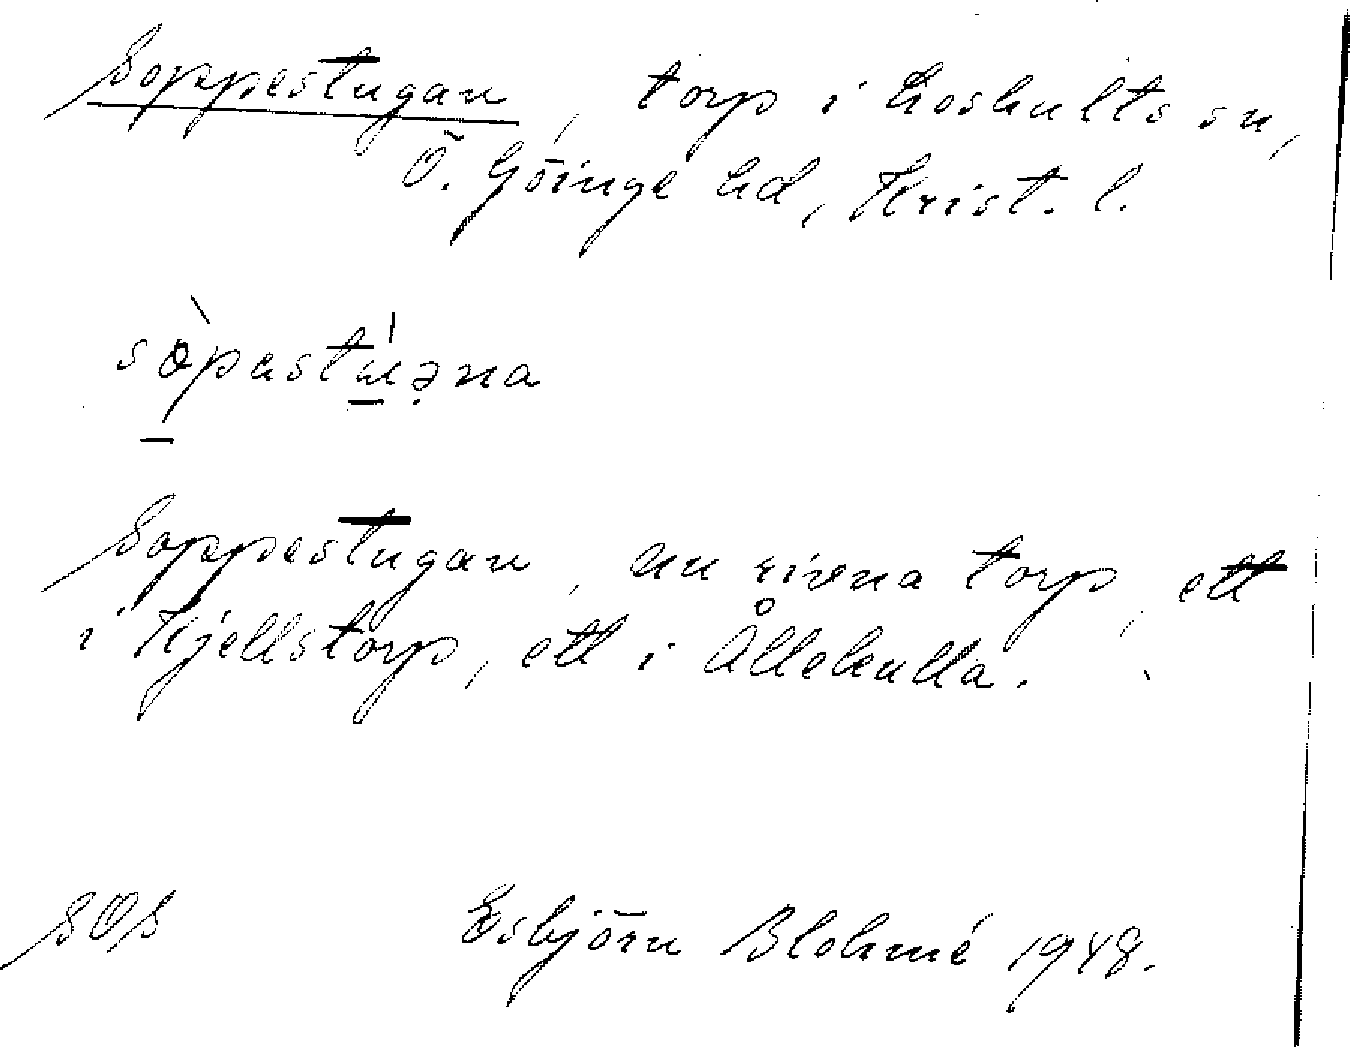 Soppestugan, torp i Loshults sn,
Ö. Göinge hd, Krist. l.
sòpastúəna
Soppestugan, nu rivna torp, ett
i Kjellstorp, ett i Ållekulla.
SOS Esbjörn Blohmé 1948.